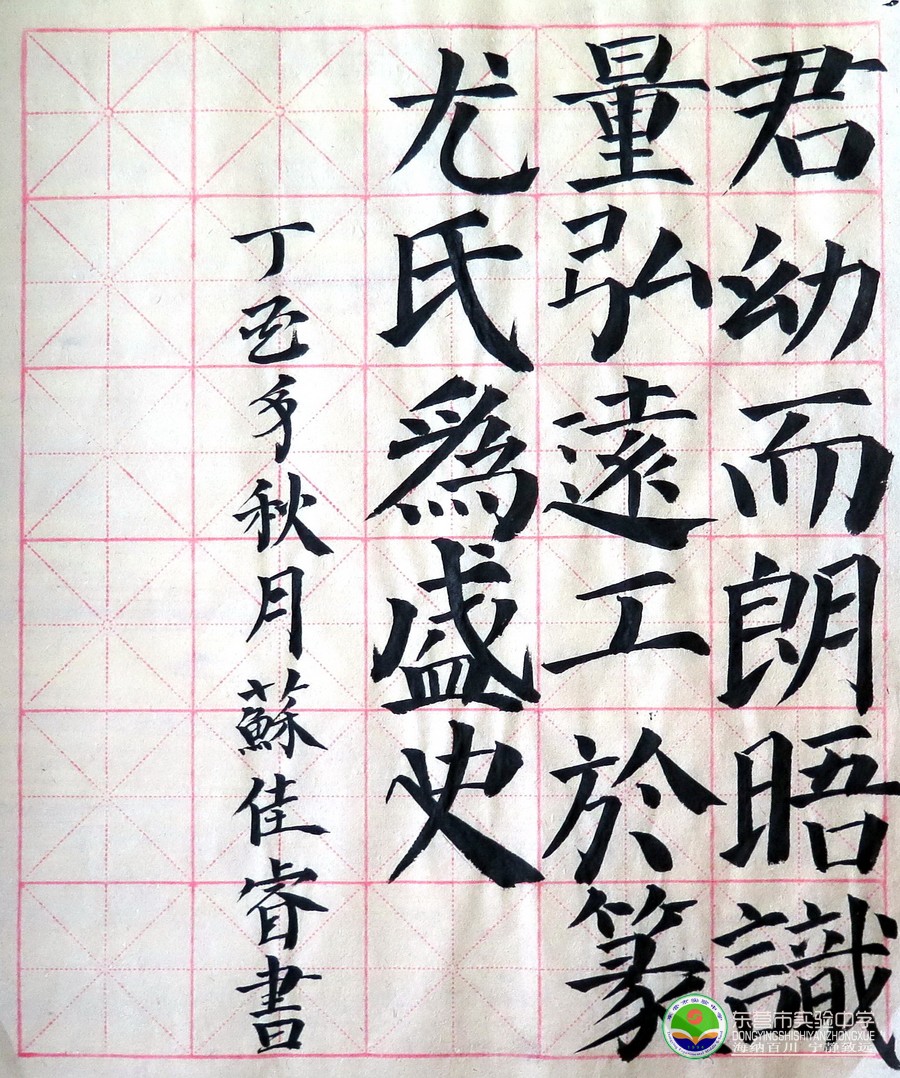 君幼而朗晤識
量弘遠工於篆
尤氏爲盛史
丁酉年秋月蘇佳睿書
东营市实验中学
DONGYINGSHISHIYANZHONGXUE
海纳百川 宁静致远